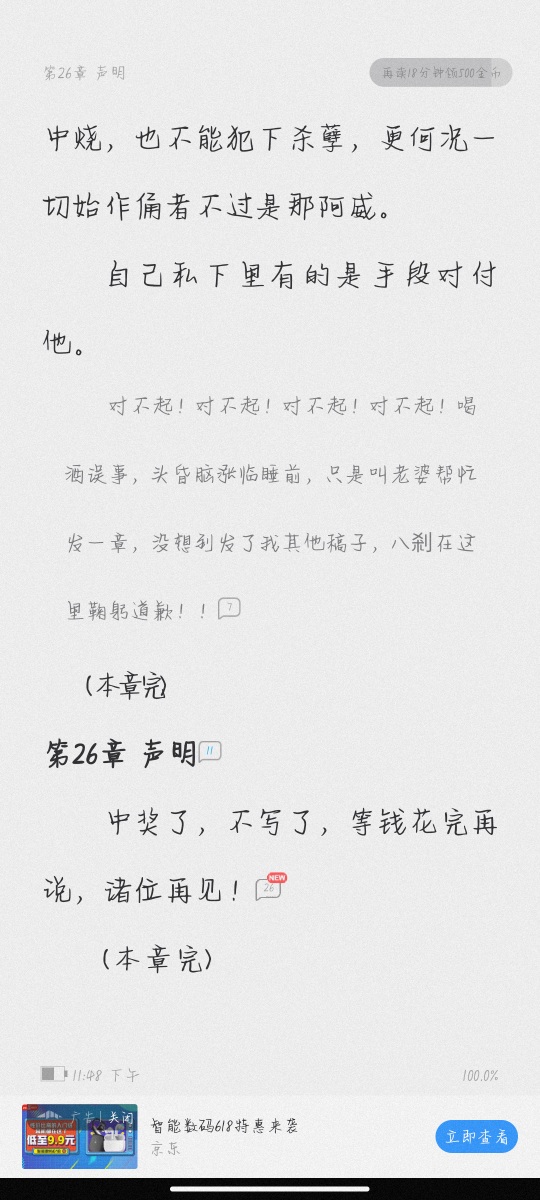 第26章 声明
再读18分钟领500金币
中烧，也不能犯下杀孽，更何况一
切始作俑者不过是那阿威。
自己私下里有的是手段对付
他。
对不起！对不起！对不起！对不起！喝
酒误事，头昏脑涨临睡前，只是叫老婆帮忙
发一章，没想到发了我其他稿子，八刹在这
里鞠躬道歉！！ 7
(本章完)
第26章 声明 11
中奖了，不写了，等钱花完再
说，诸位再见！ 26 NEW
(本章完)
11:48 下午
100.0%
广告 | 关闭
低至9.9元
智能数码618特惠来袭
京东
立即查看